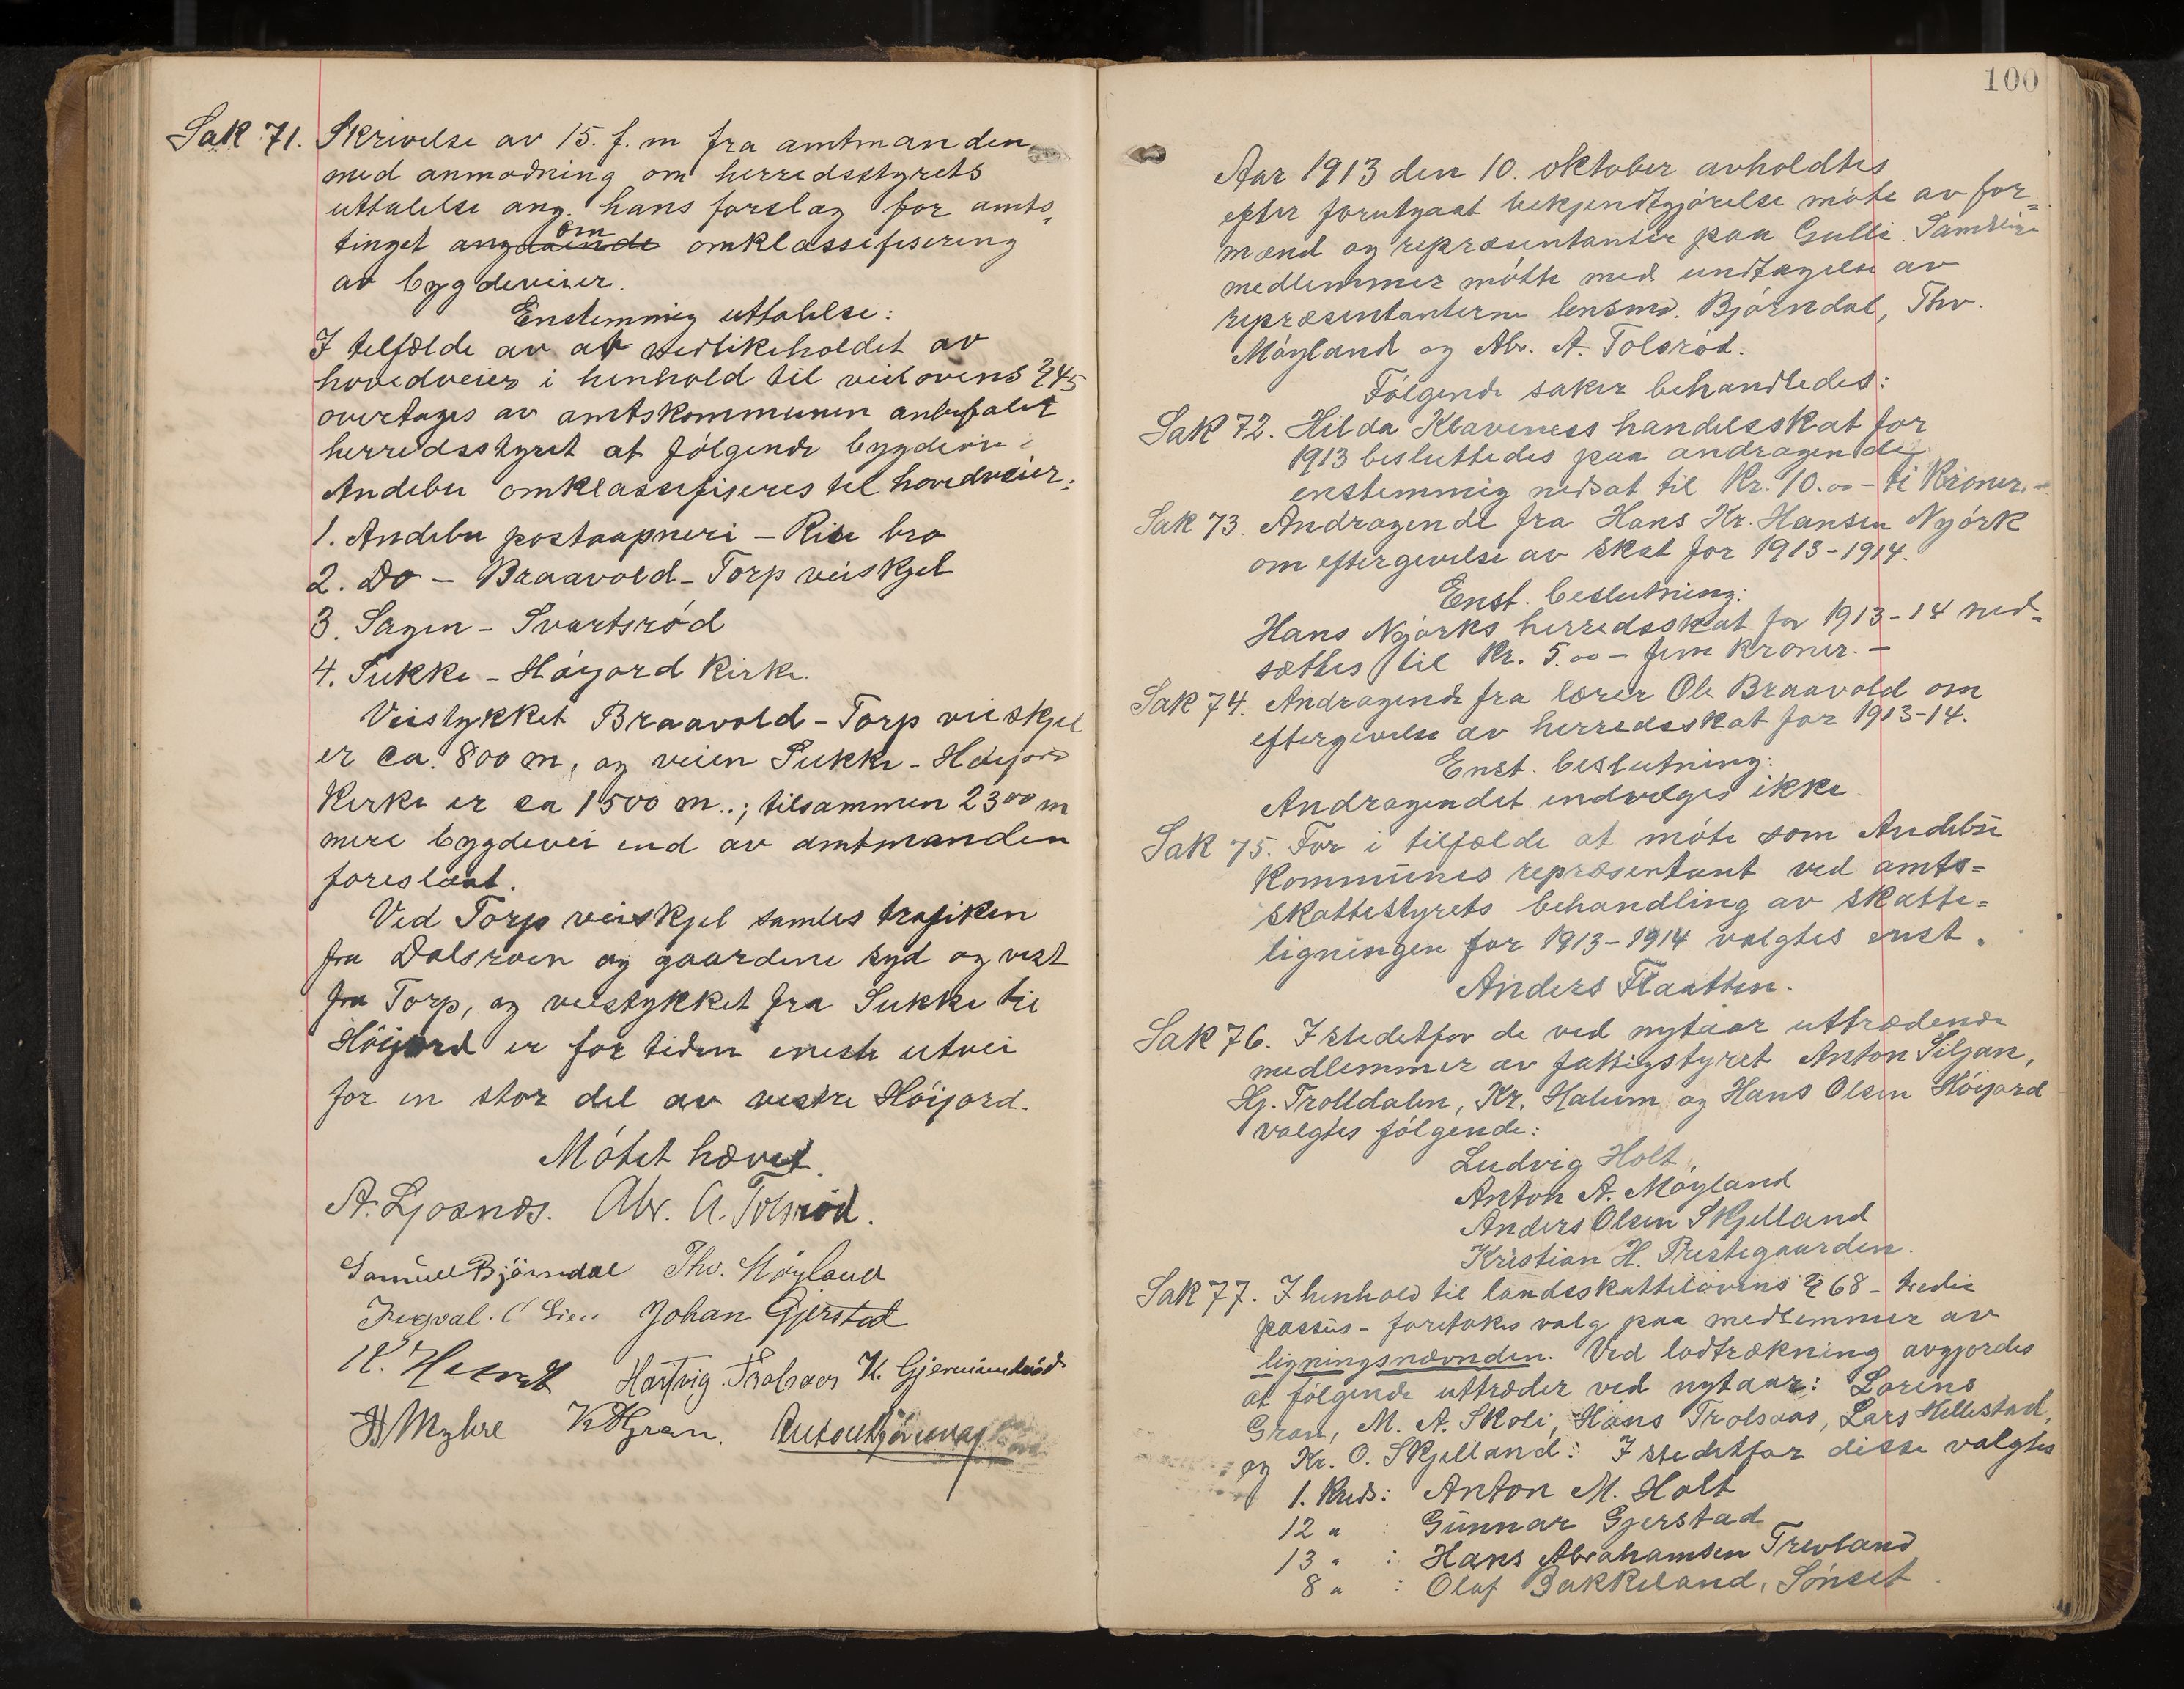 Sak 71. Skrivelse av 15. f. m fra amtmanden
med anmodning om herredsstyrets
uttalelse ang. hans forslag for amts-
tinget angaaende om omklassifisering
av bygdeveier.
Enstemmig uttalelse:
I tilfælde av at vedlikeholdet av
hovedveier i henhold til veilovens § 45
overtages av amtskommunen anbefaler
herredsstyret at følgende bygdevei i
Andebu omklassifiseres til hovedveier:
1. Andebu postaapneri - Rise bro
2. Do - Braavold - Torp veiskjel
3. Sagen - Svartsrød
4. Sukke - Høigord Kirke.
Veistykket Braavold - Torp veiskjel
er ca. 800 m, og veien Sukke - Høigord
Kirke er ca 1500 m..; tilsammen 2300 m
mere bygdevei end av amtmanden
foreslaat.
Ved Torp veiskjel samles trafiken
fra Dalsroen og gaardene syd og vest
fra Torp, og veistykket fra Sukke til
Høijord er for tiden eneste utvei
for en stor del av vestre Høijord.
Møtet hævet.
A. Ljosnæs. Abr. A. Tolsrød.
Samuel Bjørndal Thv. Møyland
Ingval. C Lien Johan Gjerstad
Hartvig Trolsaas K.
H Myhre K H Gran.
100
Aar 1913 den 10. oktober avholdtes
efter forutgaat bekjendtgjørelse møte av for=
mænd og repræsentanter paa Gulli. Samtlige
medlemmer møtte med undtagelse av
repræsentanterne lensmd. Bjørndal, Thv.
Møyland og Abr. A. Tolsrød.
Følgende saker behandledes:
Sak 72. Hilda Klaveness handelsskat for
1913 besluttedes paa andragende
enstemmig nedsat til Kr. 10.00 - ti Kroner. -
Sak 73. Andragende fra Hans Kr. Hansen Nyørk
om eftergivelse av skat for 1913-1914.
Enst. beslutning:
Hans Nyørks herredsskat for 1913-14 ned-
sættes til Kr. 5.00 - fem Kroner. -
Sak 74. Andragende fra lærer Ole Braavold om
eftergivelse av herredsskat for 1913-14.
Enst. beslutning:
Andragendet indvilges ikke
Sak 75. For i tilfælde at møte som Andebu
Kommunes repræsentant ved amts=
skattestyrets behandling av skatte=
ligningen for 1913-1914 valgtes enst.
Anders Flaatten.
Sak 76. I stedetfor de ved nytaar uttrædende
medlemmer av fattigstyret Anton Siljan,
Hj. Trolldalen, Kr. Halum og Hans Olsen Høijord
valgtes følgende:
Ludvig Holt,
Anton A. Møyland
Anders Olsen Skjelland
Kristian H. Prestegaarden.
Sak 77. I henhold til landsskattelovens § 68 - tredie
passus - foretokes valg paa medlemmer av
ligningsnævnden. Ved lodtrækning avgjordes
at følgende uttræder ved nytaar: Lorens
Gran, M. A. Skoli, Hans Trolsaas, Lars Hillestad,
og Kr. O. Skjelland: I stedetfor disse valgtes
1. Kreds: Anton M. Holt
12 " : Gunnar Gjerstad
13 " : Hans Abrahamsen Trevland
8 " : Olaf Bakkeland, Sønset.